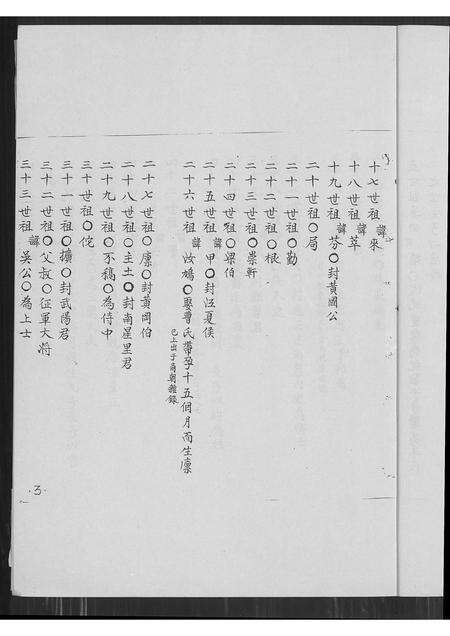 十七世祖諱來
十八世祖諱萃
十九世祖諱芬○封黃岡公
二十世祖○局
二十一世祖○勤
二十二世祖○根
二十三世祖○崇軒
二十四世祖○梁伯
二十五世祖諱甲○封江夏侯
二十六世祖諱汝鳩○娶曹氏帶孕十五個月而生廩
已上出于商朝
二十七世祖○廩○封黃岡伯
二十八世祖○主土○封南星里君
二十九世祖○不稿○為侍中
三十世祖○侘
三十一世祖○擴○封武陽君
三十二世祖○父叔○征軍大將
三十三世祖諱吳公○為上士
·3·